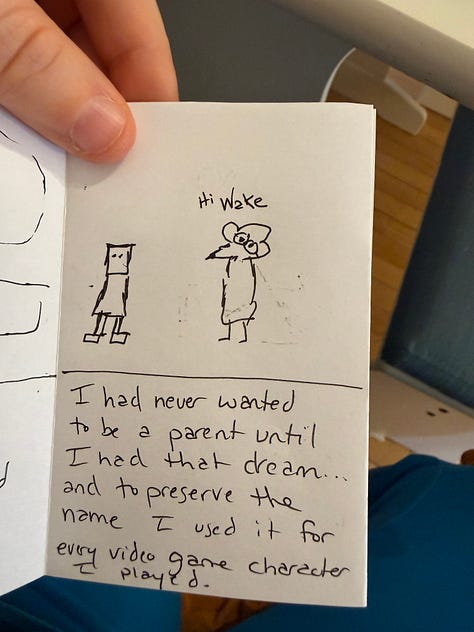 Hi Wake
I had never wanted
to be a parent until
I had that dream...
and to preserve the
name I used it for
every video game character
I played.